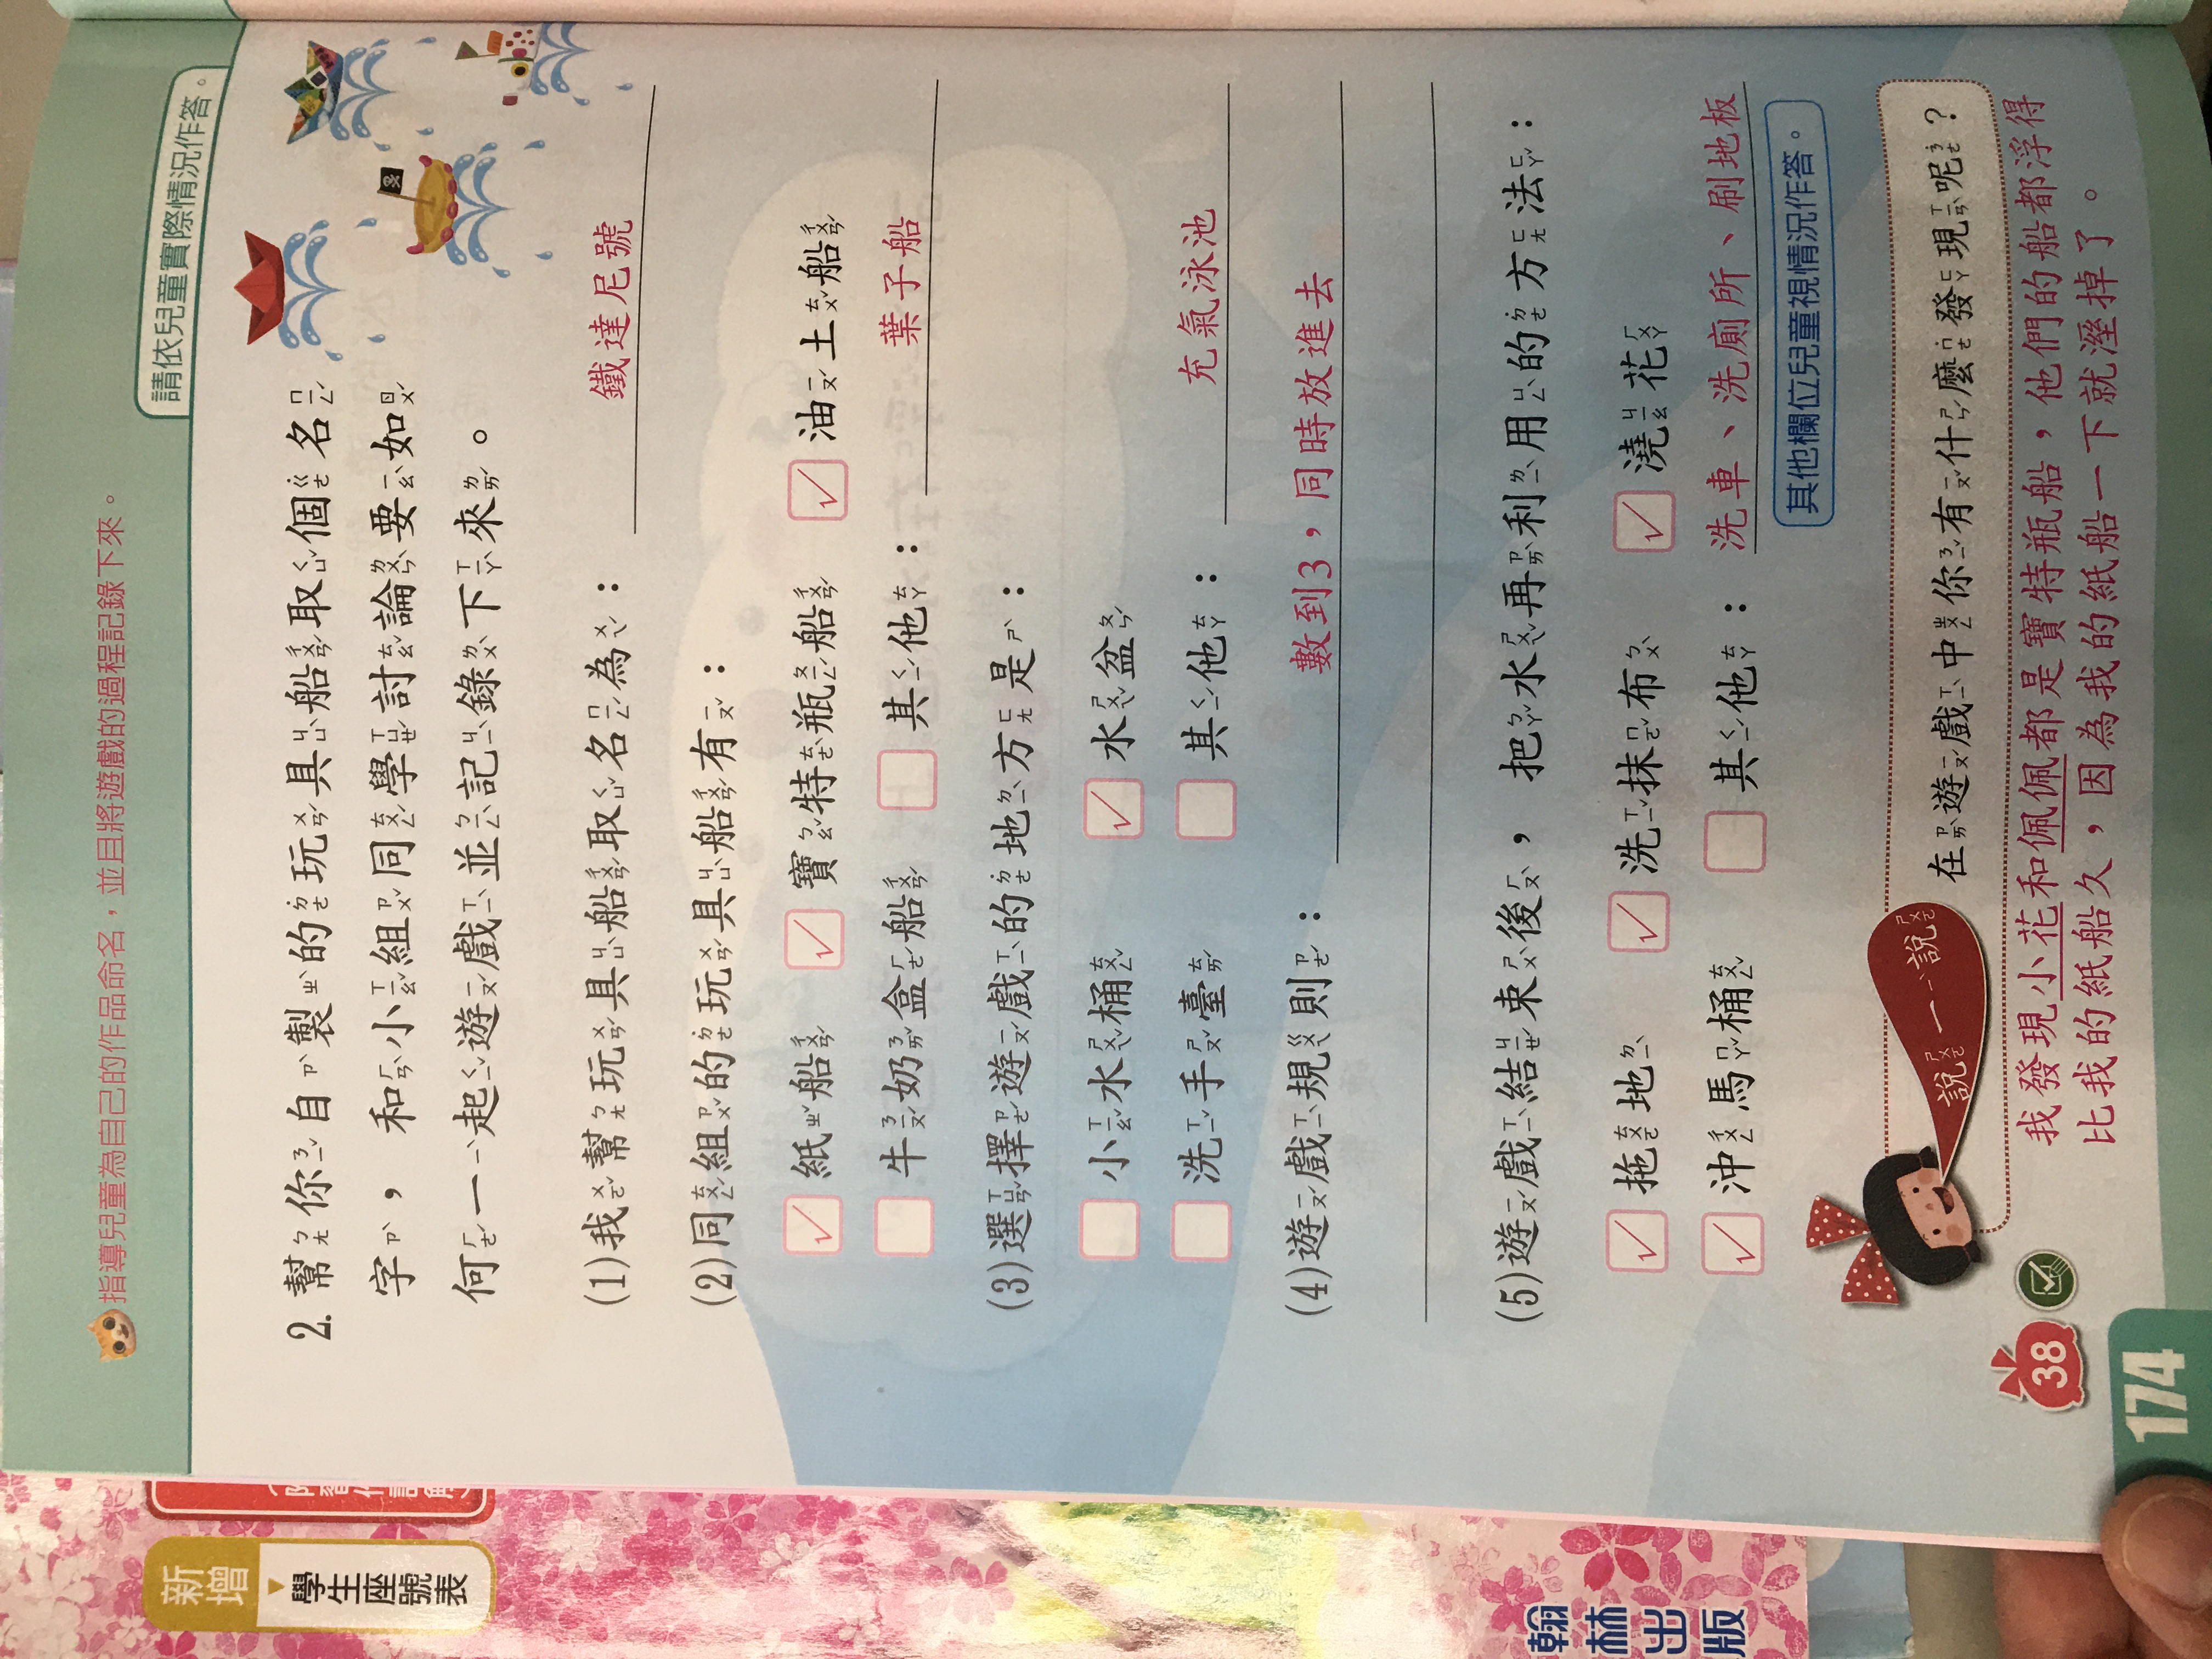 指導兒童為自己的作品命名，並且將遊戲的過程記錄下來。
請依兒童實際情況作答。
2. 幫你自製的玩具船取個名
字，和小組同學討論要如
何一起遊戲並記錄下來。
(1)我幫玩具船取名為： 鐵達尼號
(2)同組的玩具船有：
✓ 紙船 ✓ 寶特瓶船 ✓ 油土船
牛奶盒船 其他： 葉子船
(3)選擇遊戲的地方是：
小水桶 ✓ 水盆
洗手臺 其他： 充氣泳池
(4)遊戲規則： 數到3，同時放進去
(5)遊戲結束後，把水再利用的方法：
✓ 拖地 ✓ 洗抹布 ✓ 澆花
✓ 沖馬桶 其他： 洗車、洗廁所、刷地板
其他欄位兒童視情況作答。
說一說 在遊戲中你有什麼發現呢？
我發現小花和佩佩都是寶特瓶船，他們的船都浮得
比我的紙船久，因為我的紙船一下下就溼掉了。
38
174
新增
學生座號表
翰林出版